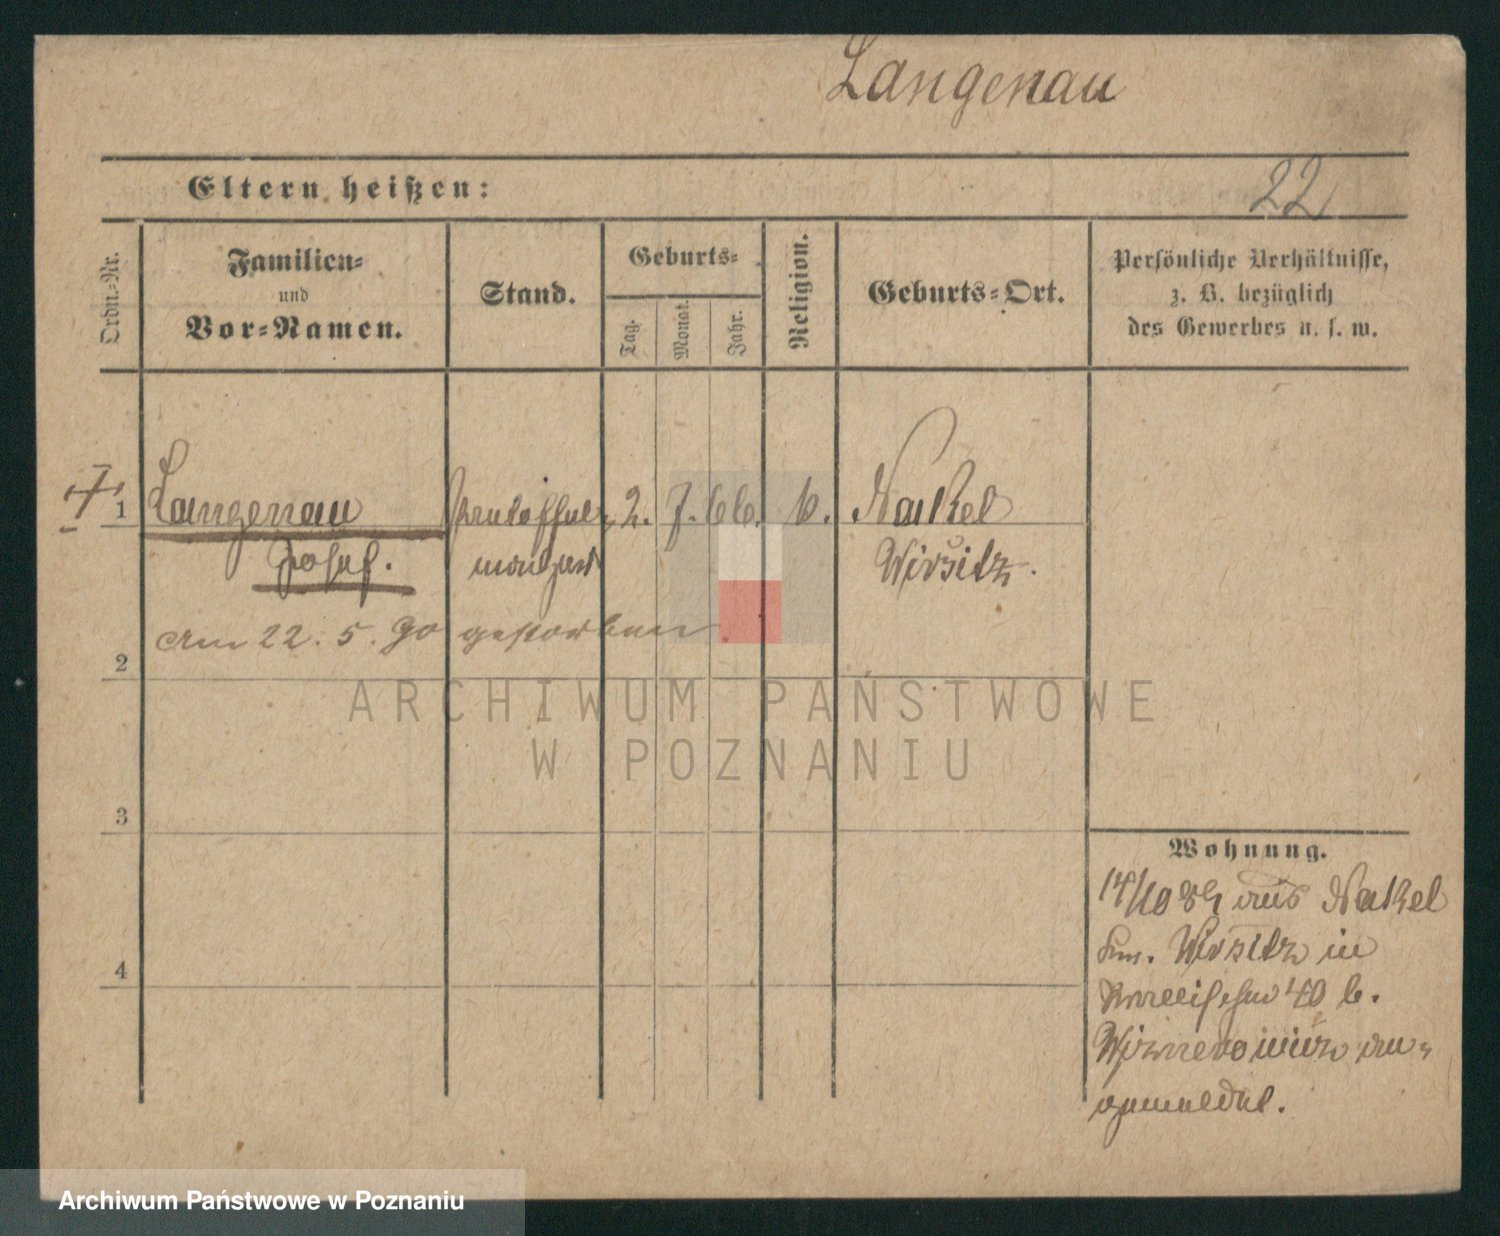 Langenau
22
Eltern heißen:
Ordn.-Nr.
Familien-
und
Vor-Namen.
Stand.
Geburts-
Tag.
Monat.
Jahr.
Religion.
Geburts-Ort.
Persönliche Verhältnisse,
z. B. bezüglich
des Gewerbes u. s. w.
1 Langenau 2. 7. 66. k. Nakel
Josef. Wirsitz.
Am 22. 5. 90 gestorben.
2
ARCHIWUM PAŃSTWOWE
W POZNANIU
3
Wohnung.
14/10 89 aus Nakel
Krs. Wirsitz in
40 b.
an-
gemeldet.
4
Archiwum Państwowe w Poznaniu